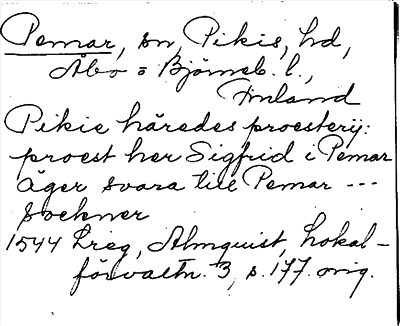 Pemar, sn, Pikis, hd,
Åbo o Björneb. l.,
Finland
Pikie häredes proesterij:
proest her Sigfrid i Pemar
äger svara till Pemar ---
sockner
1544 Lreg, Almquist, Lokal-
förvaltn. 3, s. 177. orig.